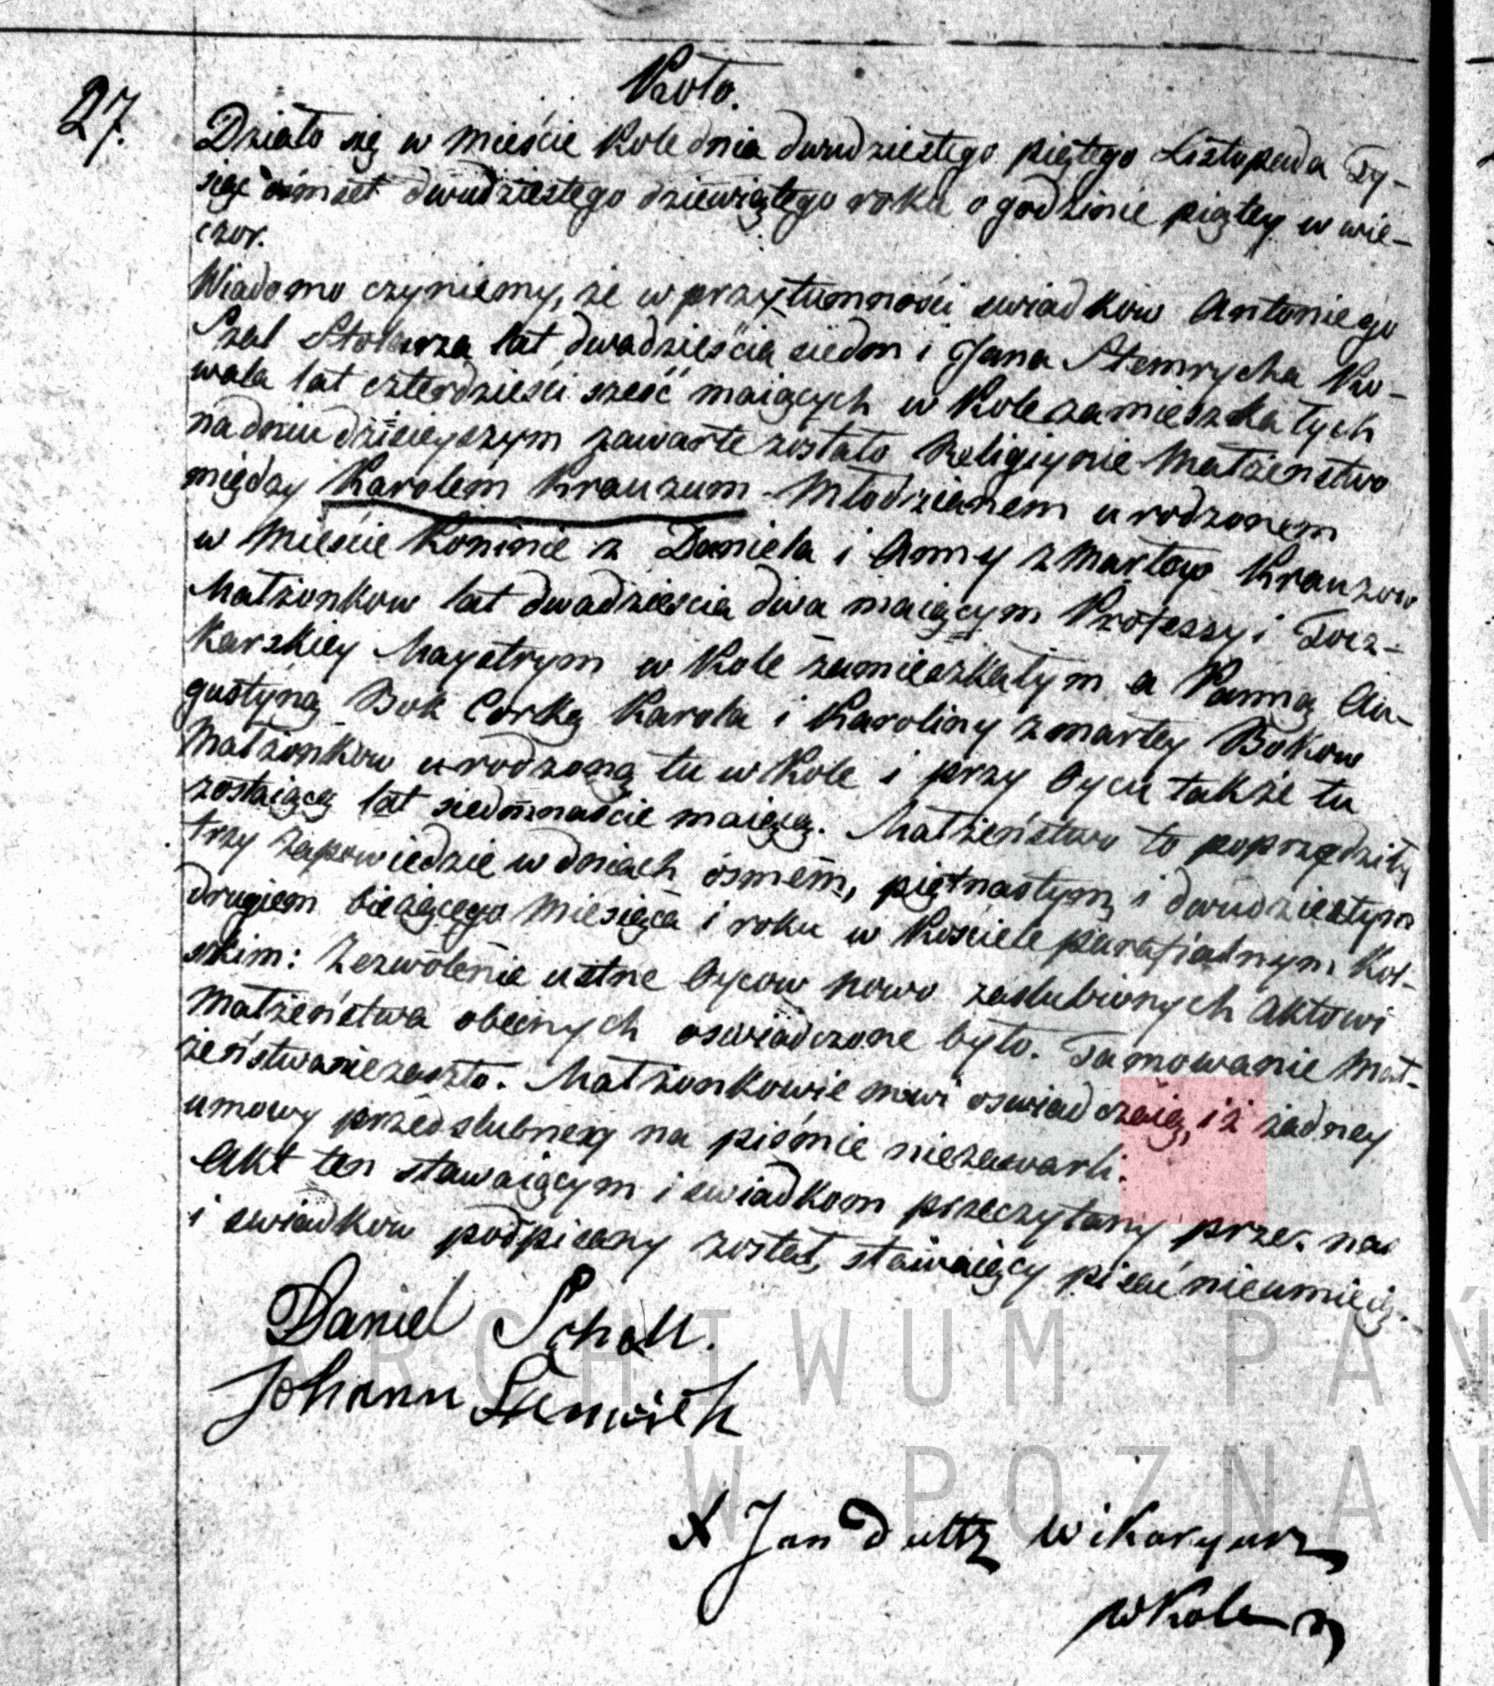 Koło.
27. Działo się w mieście Kole dnia dwudziestego piętego Listopada Ty-
siąc ośmset dwudziestego dziewiątego roku o godzinie piątey w wie-
czor.
Wiadomo czyniemy, że w przytumności swiadkow Antoniego
Szal Stolarza lat dwadzieścia siedm i Jana Stemrycha Ko-
wala lat czterdzieści sześć maiących w Kole zamieszkałych
na dniu dzisieyszym zawarte zostało Religiynie Małżeństwo
między Karolem Krauzum Młodzianem urodzonem
w Mieście Koninie z Daniela i Anny zmarłego Krauzow
Małżonkow lat dwadzieścia dwa maiącym Professyi Tocz-
karskiey Maystrym w Kole zamieszkałym a Panną Au-
gustyną Bok Corką Karola i Karoliny zmarłey Bokow
Małżonkow urodzoną tu w Kole i przy Oycu także tu
zostaiącą lat siedmnaście maiącą. Małżeństwo to poprzedziły
trzy zapowiedzie w dniach ósmem, piętnastym i dwudziestym
drugiem bieżącego Miesiąca i roku w Kościele parafialnym Kol-
skim: Zezwolenie ustne Oycow nowo zaslubionych Aktowi
Małżeństwa obecnych oswiadczone było. Tamowanie Mał-
żeństwa niezaszło. Małżonkowie nowi oswiadczaią, iż żadney
umowy przedslubney na piśmie niezawarli.
Akt ten stawaiącym i swiadkom przeczytany przez nas
i swiadkow podpisany został, stawaiący pisać nieumieią.
Daniel Scholl.
Johann
X Jan Dultz Wikaryusz
w Kole
ARCHIWUM PAŃ
W POZNAN